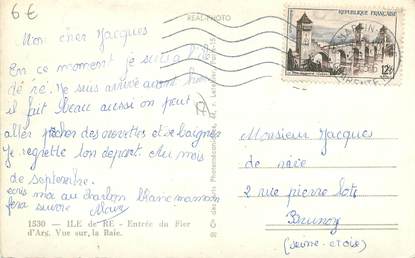 6€
REAL-PHOTO
Mon cher Jacques
En ce moment je suis a l'ile
de ré. Je suis arrivé avant hier
il fait beau aussi on peut
aller pecher des crevettes et se baigner
Je regrette ton depart. Au mois
de septembre.
ecris moi au charlon blanc maman
fera suivre Marc
1530 - ILE de RÉ - Entrée du Fier
d'Ars. Vue sur la Baie.
RÉPUBLIQUE FRANÇAISE
POSTES
12F
Monsieur Jacques
de
2 rue pierre lots
Brunoy
(Seine-et-Oise)